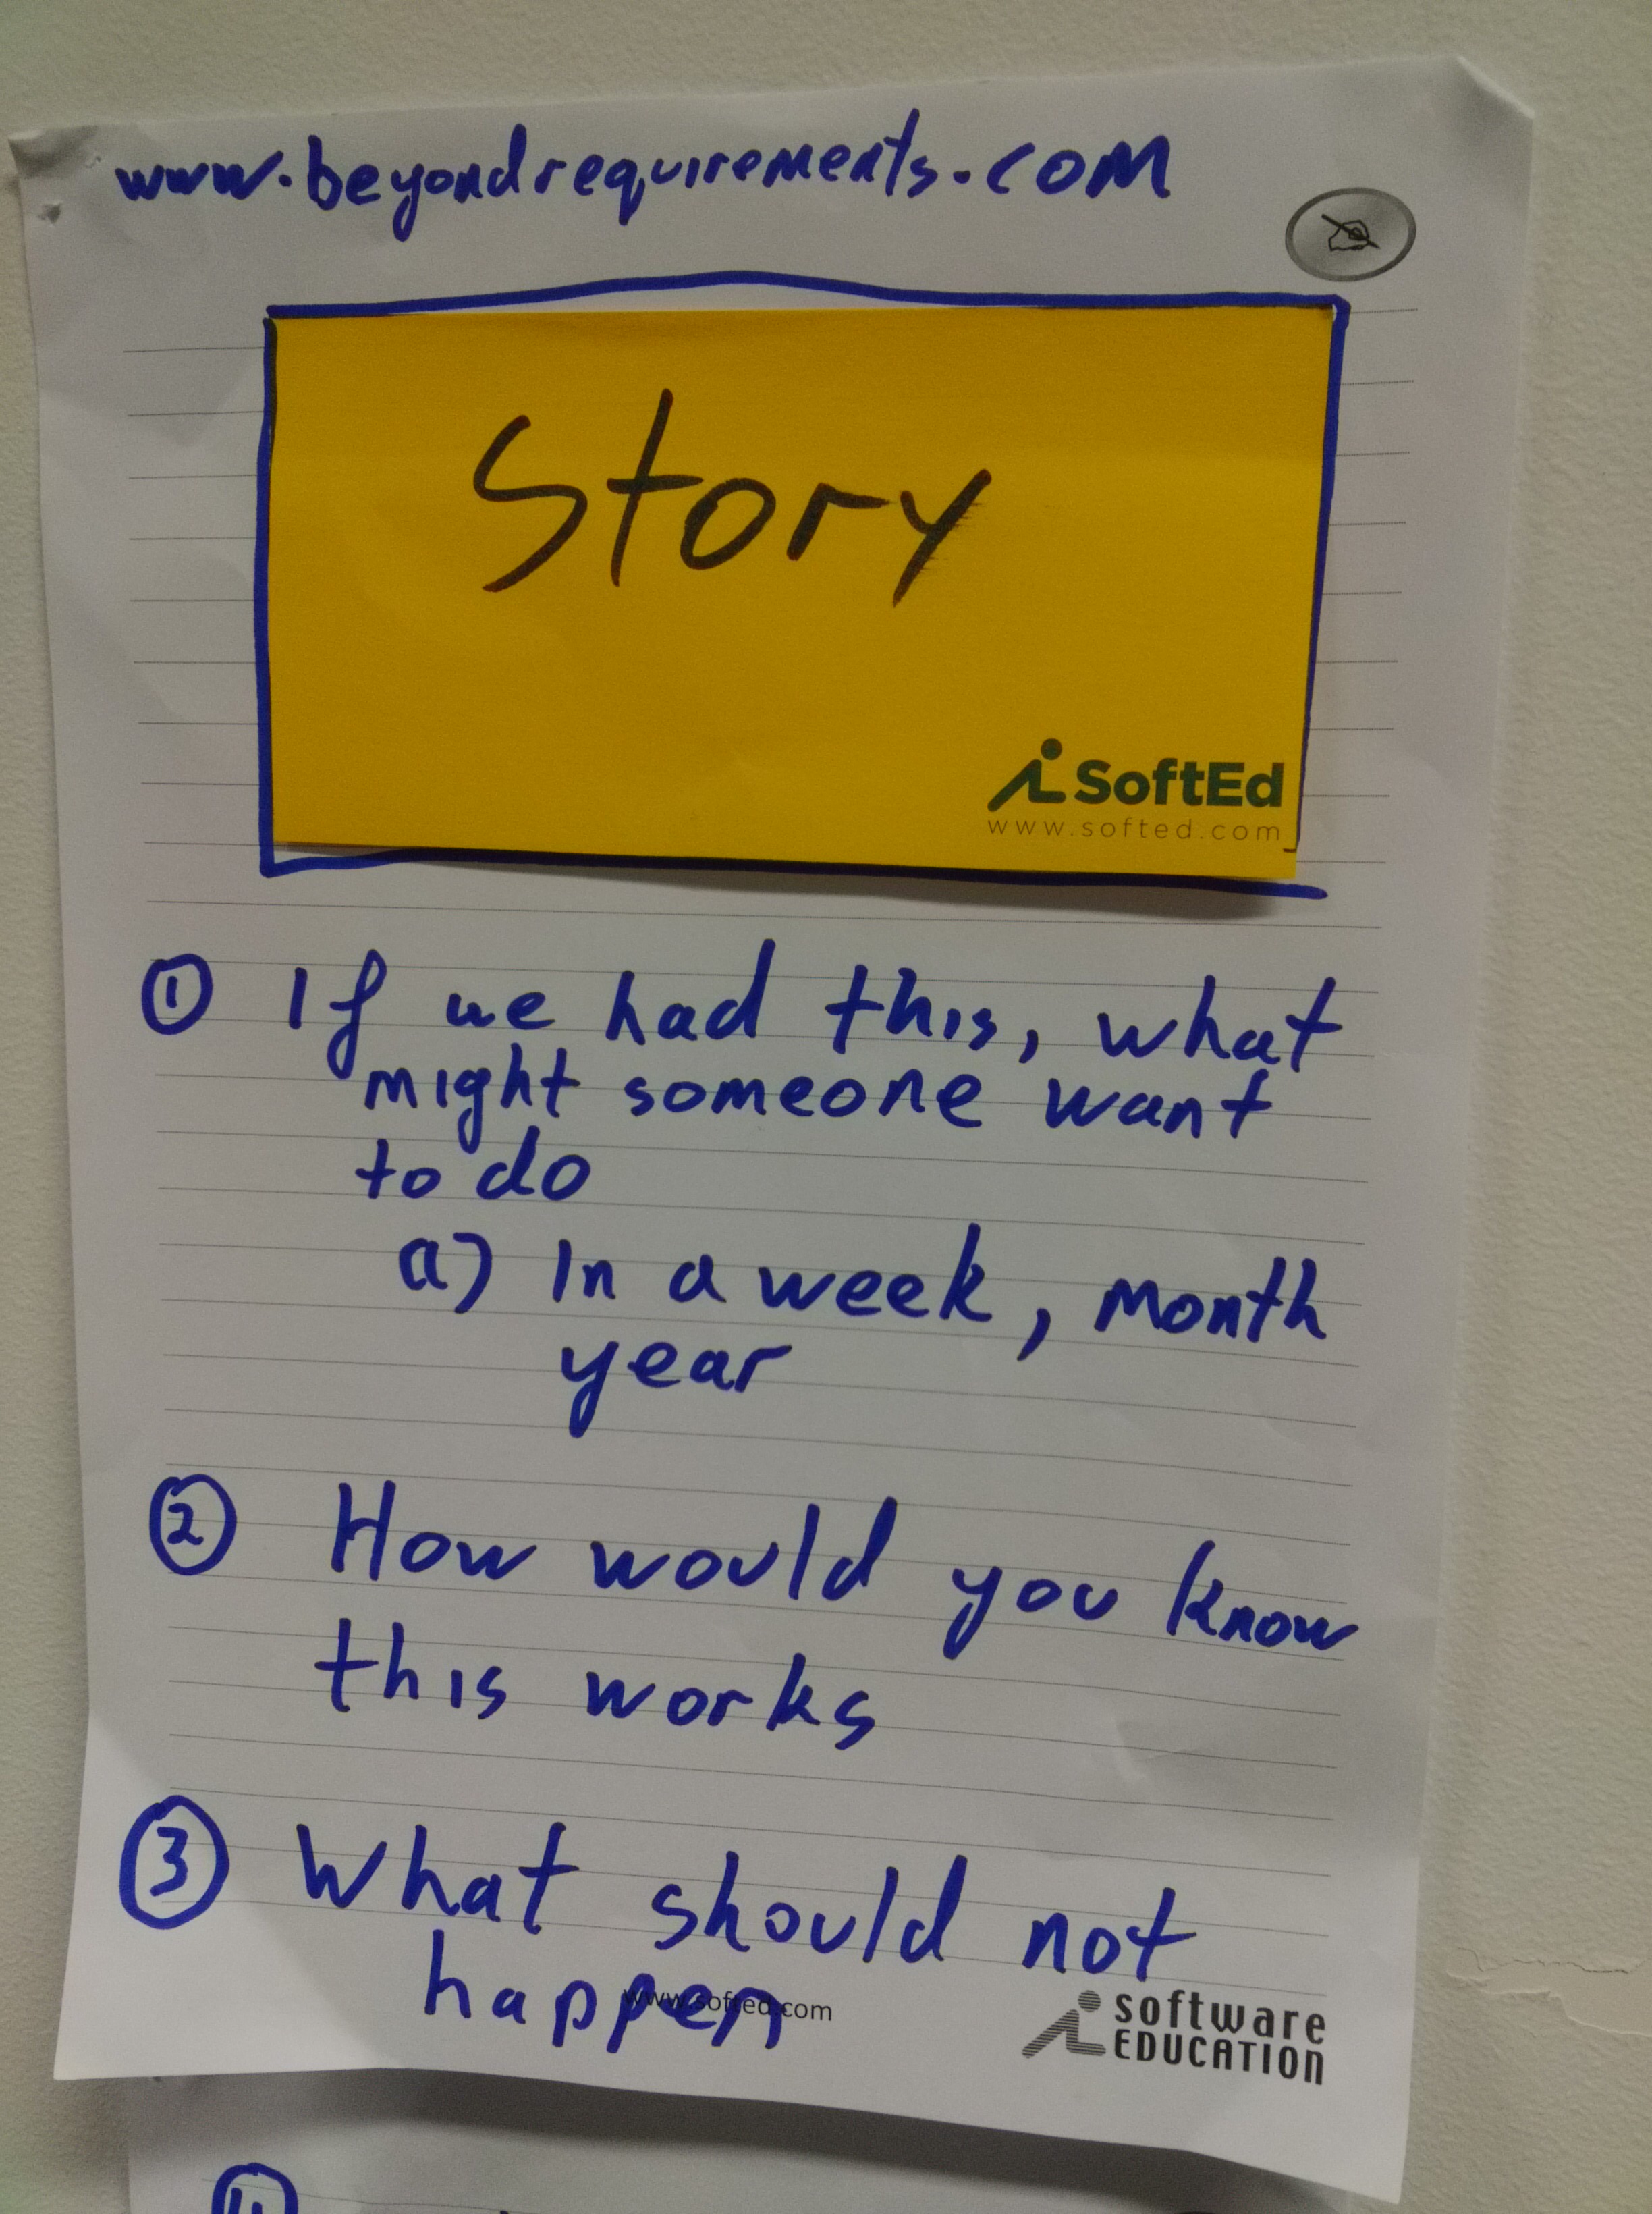 www.beyondrequirements.com
Story
SoftEd
www.softed.com
1 If we had this, what
might someone want
to do
a) In a week, month
year
2 How would you know
this works
3 What should not
happen
www.softed.com
software
EDUCATION
4